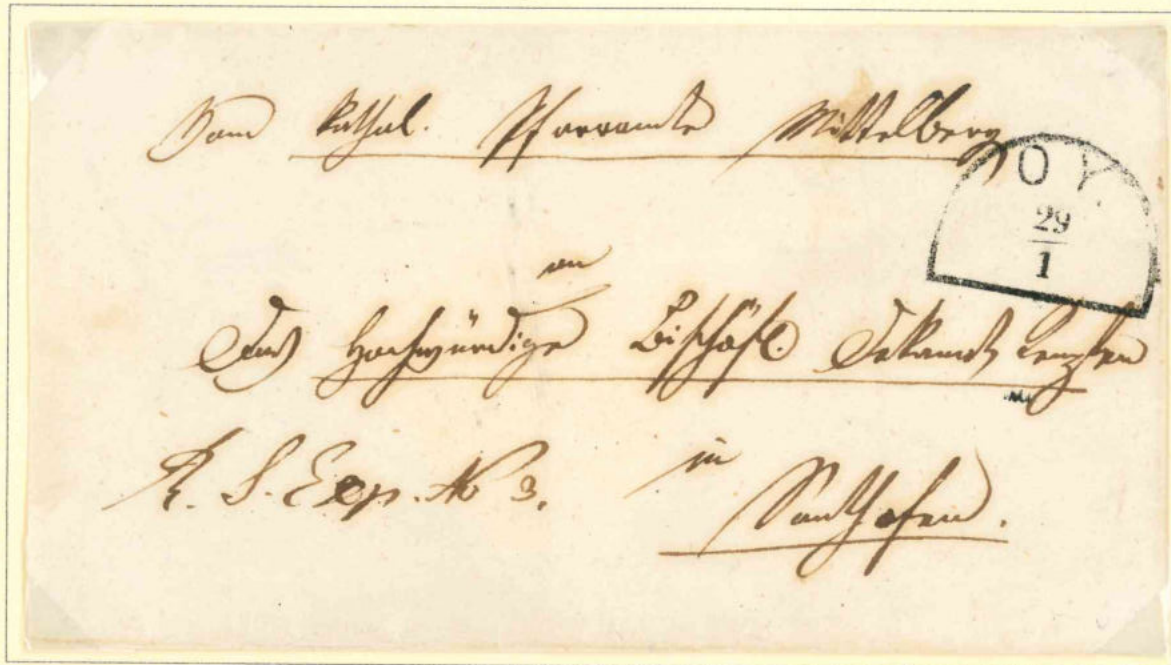 Vom kathol. Pfarramte Mittelberg
OY
29
1
an
Das Hochwürdige Bischöfl. Dekanat
R. S. Exp. No 3. in
Sonthofen.